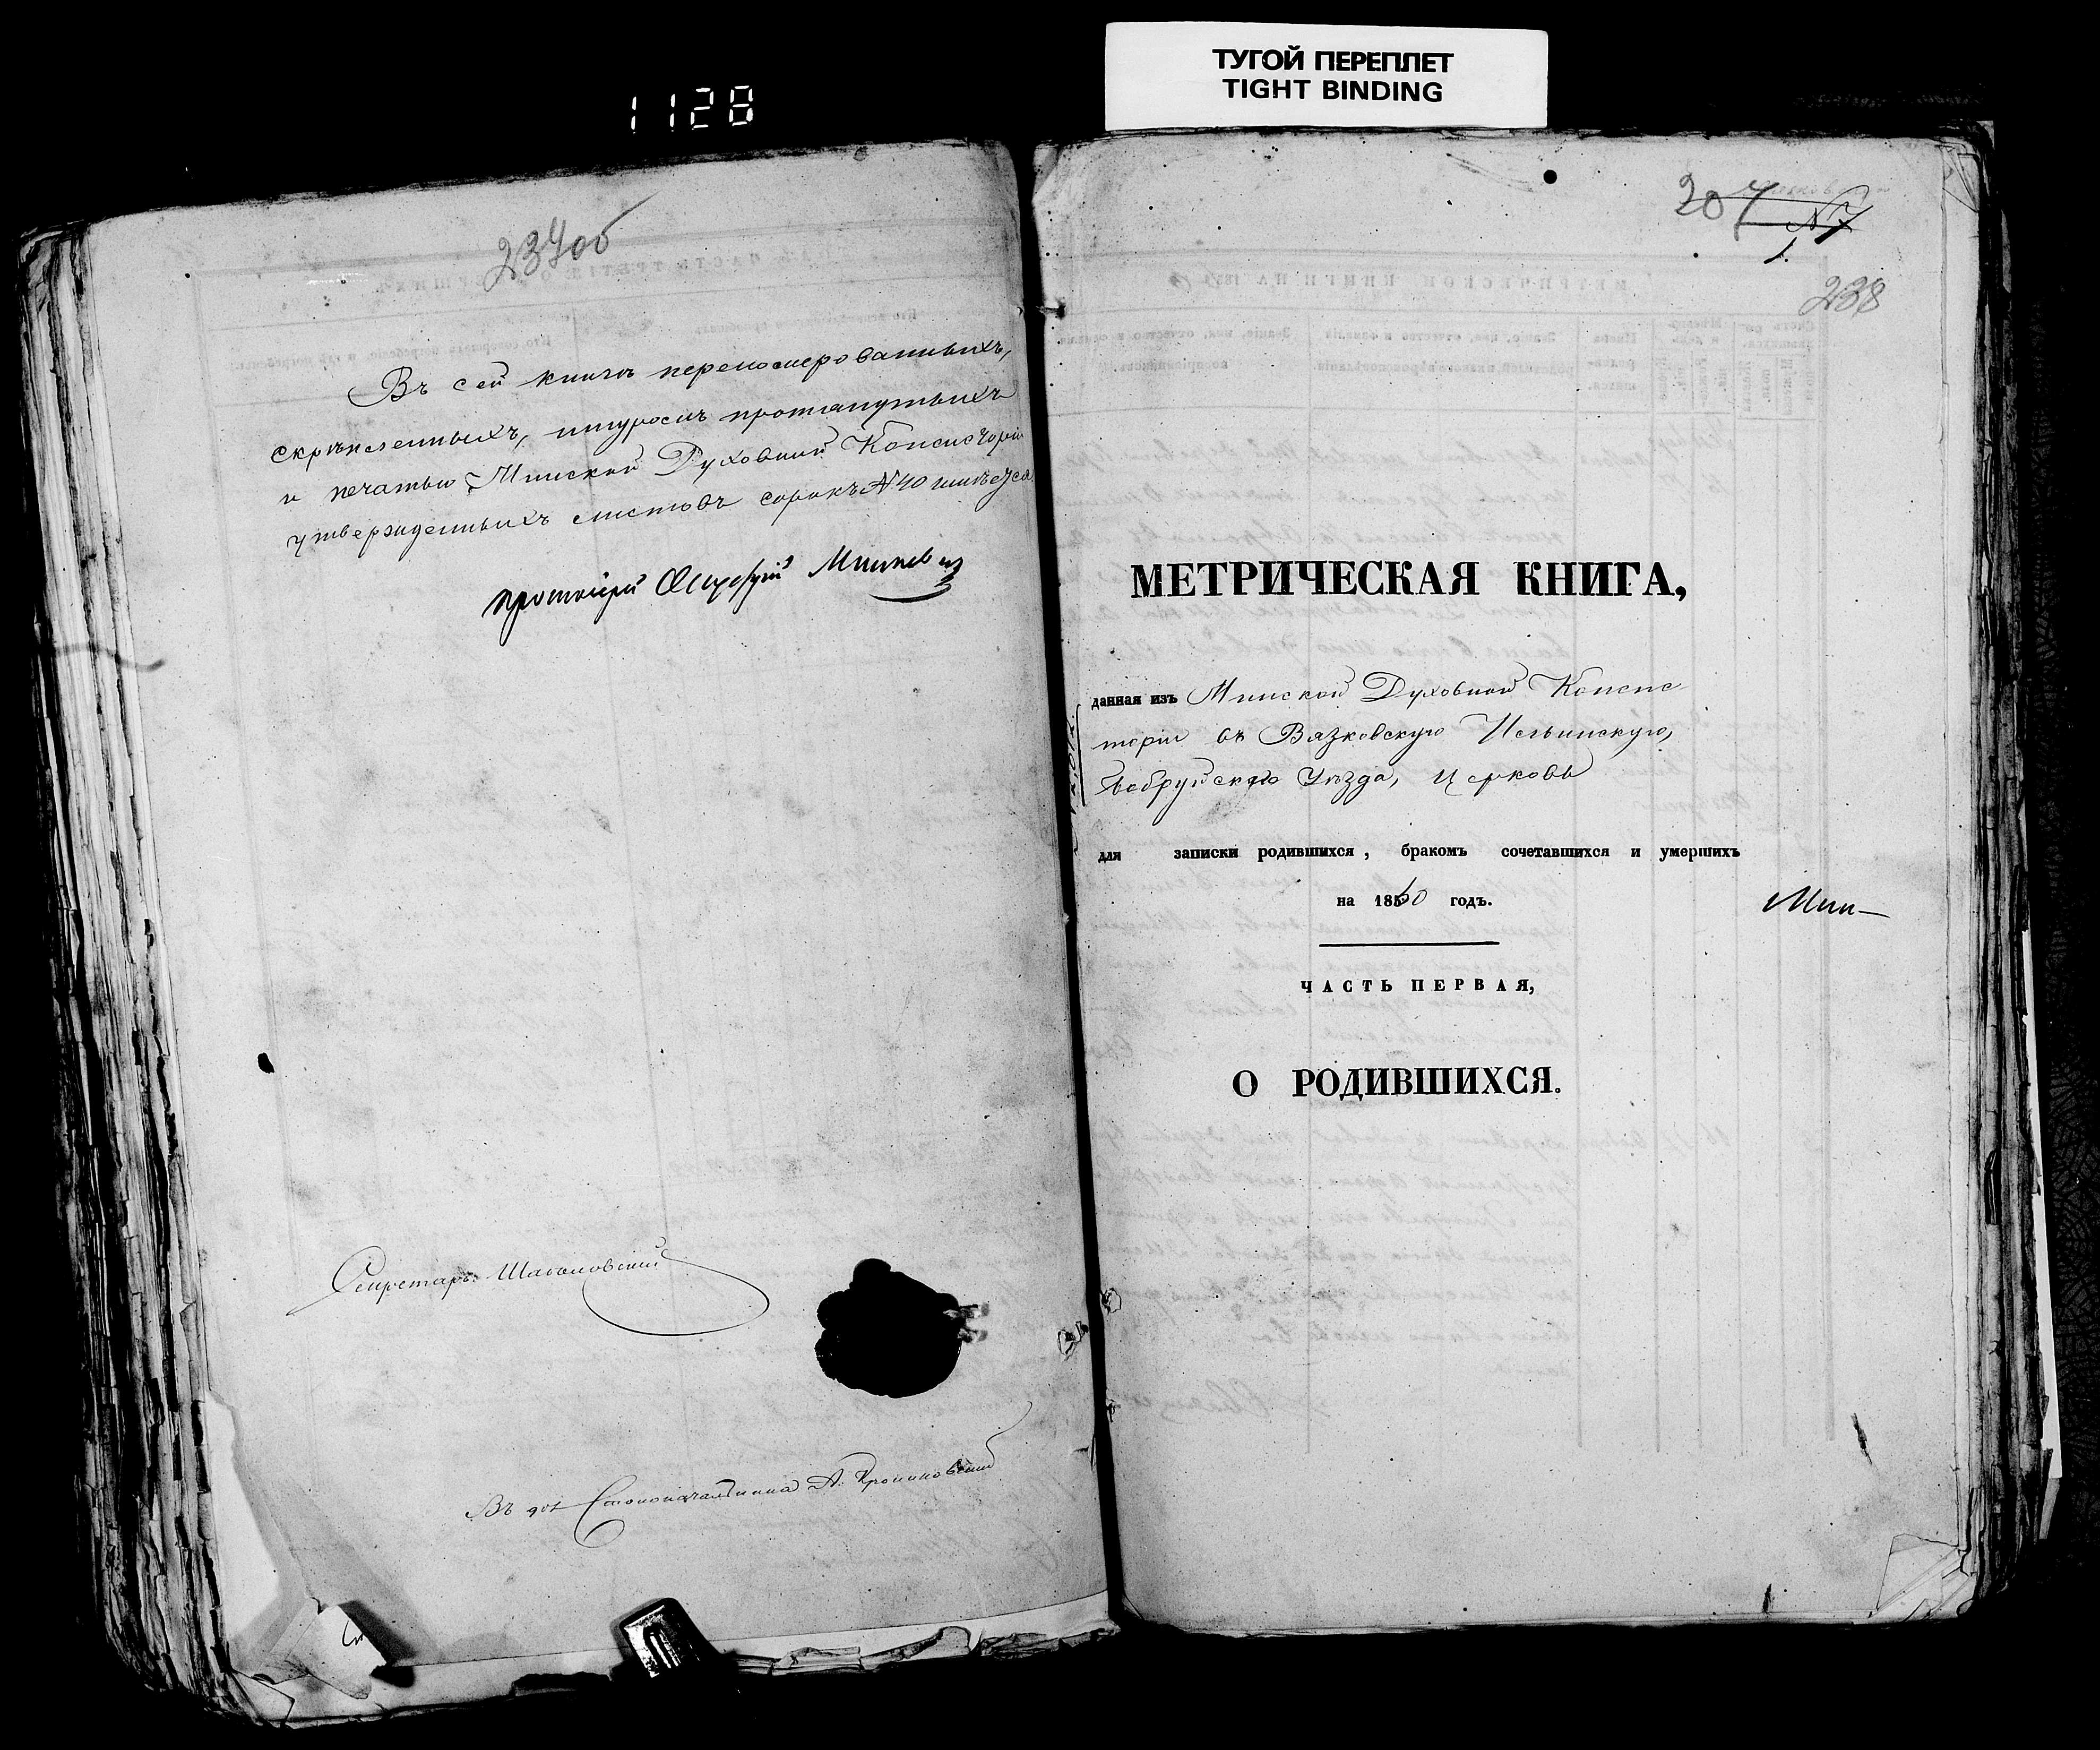 ТУГОЙ ПЕРЕПЛЕТ
TIGHT BINDING
1128
234об
Въ сей книгѣ перенумерованныхъ,
скрѣпленныхъ, шнуромъ протянутыхъ
и печатью Минской Духовной Консисторіи
утвержденныхъ листовъ сорокъ № 40 имѣется
протоіерей
Секретарь
Въ дол. Столоначальника А.
207
№ 7
238
МЕТРИЧЕСКАЯ КНИГА,
данная изъ Минской Духовной Консис
торіи въ Вязковскую Ильинскую,
Бобруйскаго Уѣзда, Церковь
для записки родившихся, бракомъ сочетавшихся и умершихъ
на 1860 годъ.
Мин—
ЧАСТЬ ПЕРВАЯ,
О РОДИВШИХСЯ.